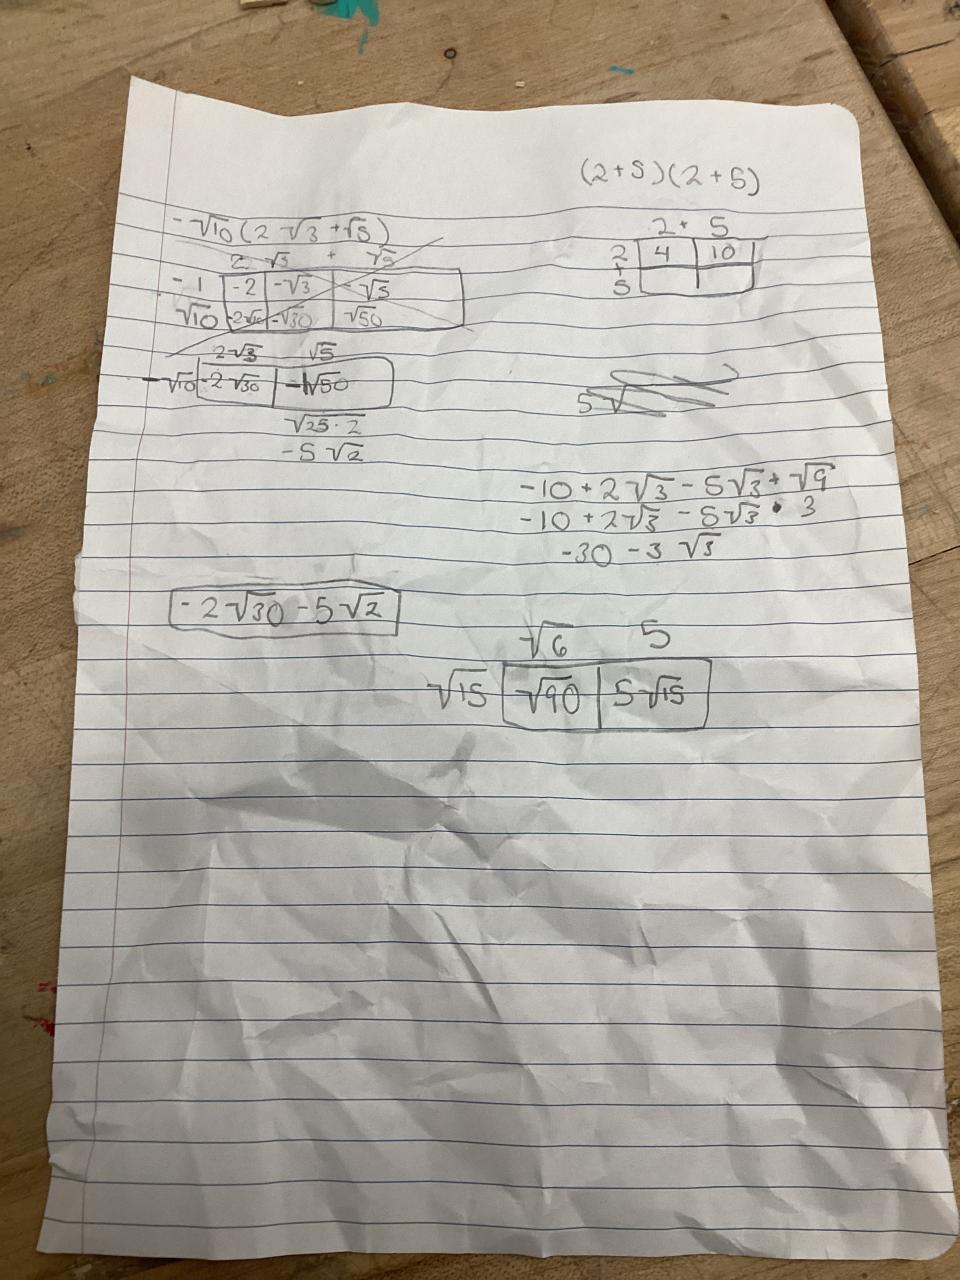 (2+5)(2+5)
-√10(2√3+√5)
2 √3 + √5
-1 -2 -√3 -√5
√10 -2√10 -√30 √50
2+ 5
2 4 10
+
5
2√3 √5
-√10 -2√30 -1√50
√25·2
-5√2
5√
-10+2√3-5√3+√9
-10+2√3-5√3·3
-30-3√3
-2√30-5√2
√6 5
√15 √90 5√15